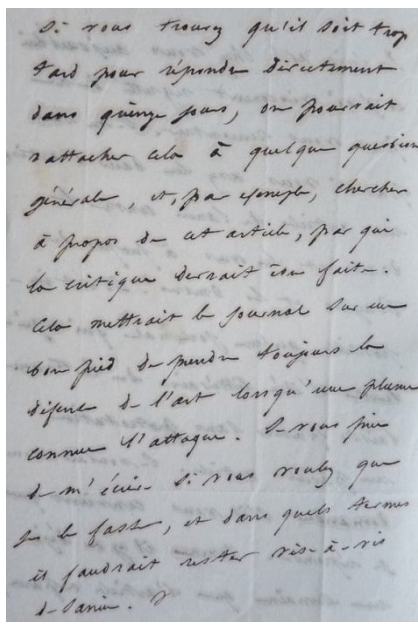 Si vous trouvez qu'il soit trop
tard pour répondre directement
dans quinze jours, on pourrait
rattacher cela à quelque question
générale, et, par exemple, chercher
à propos de cet article, par qui
la critique devrait être faite.
Cela mettrait le journal sur un
bon pied de prendre toujours la
défense de l'art lorsqu'une plume
connue l'attaque. Je vous prie
de m'écrire si vous voulez que
je le fasse, et dans quels termes
il faudrait rester vis-à-vis